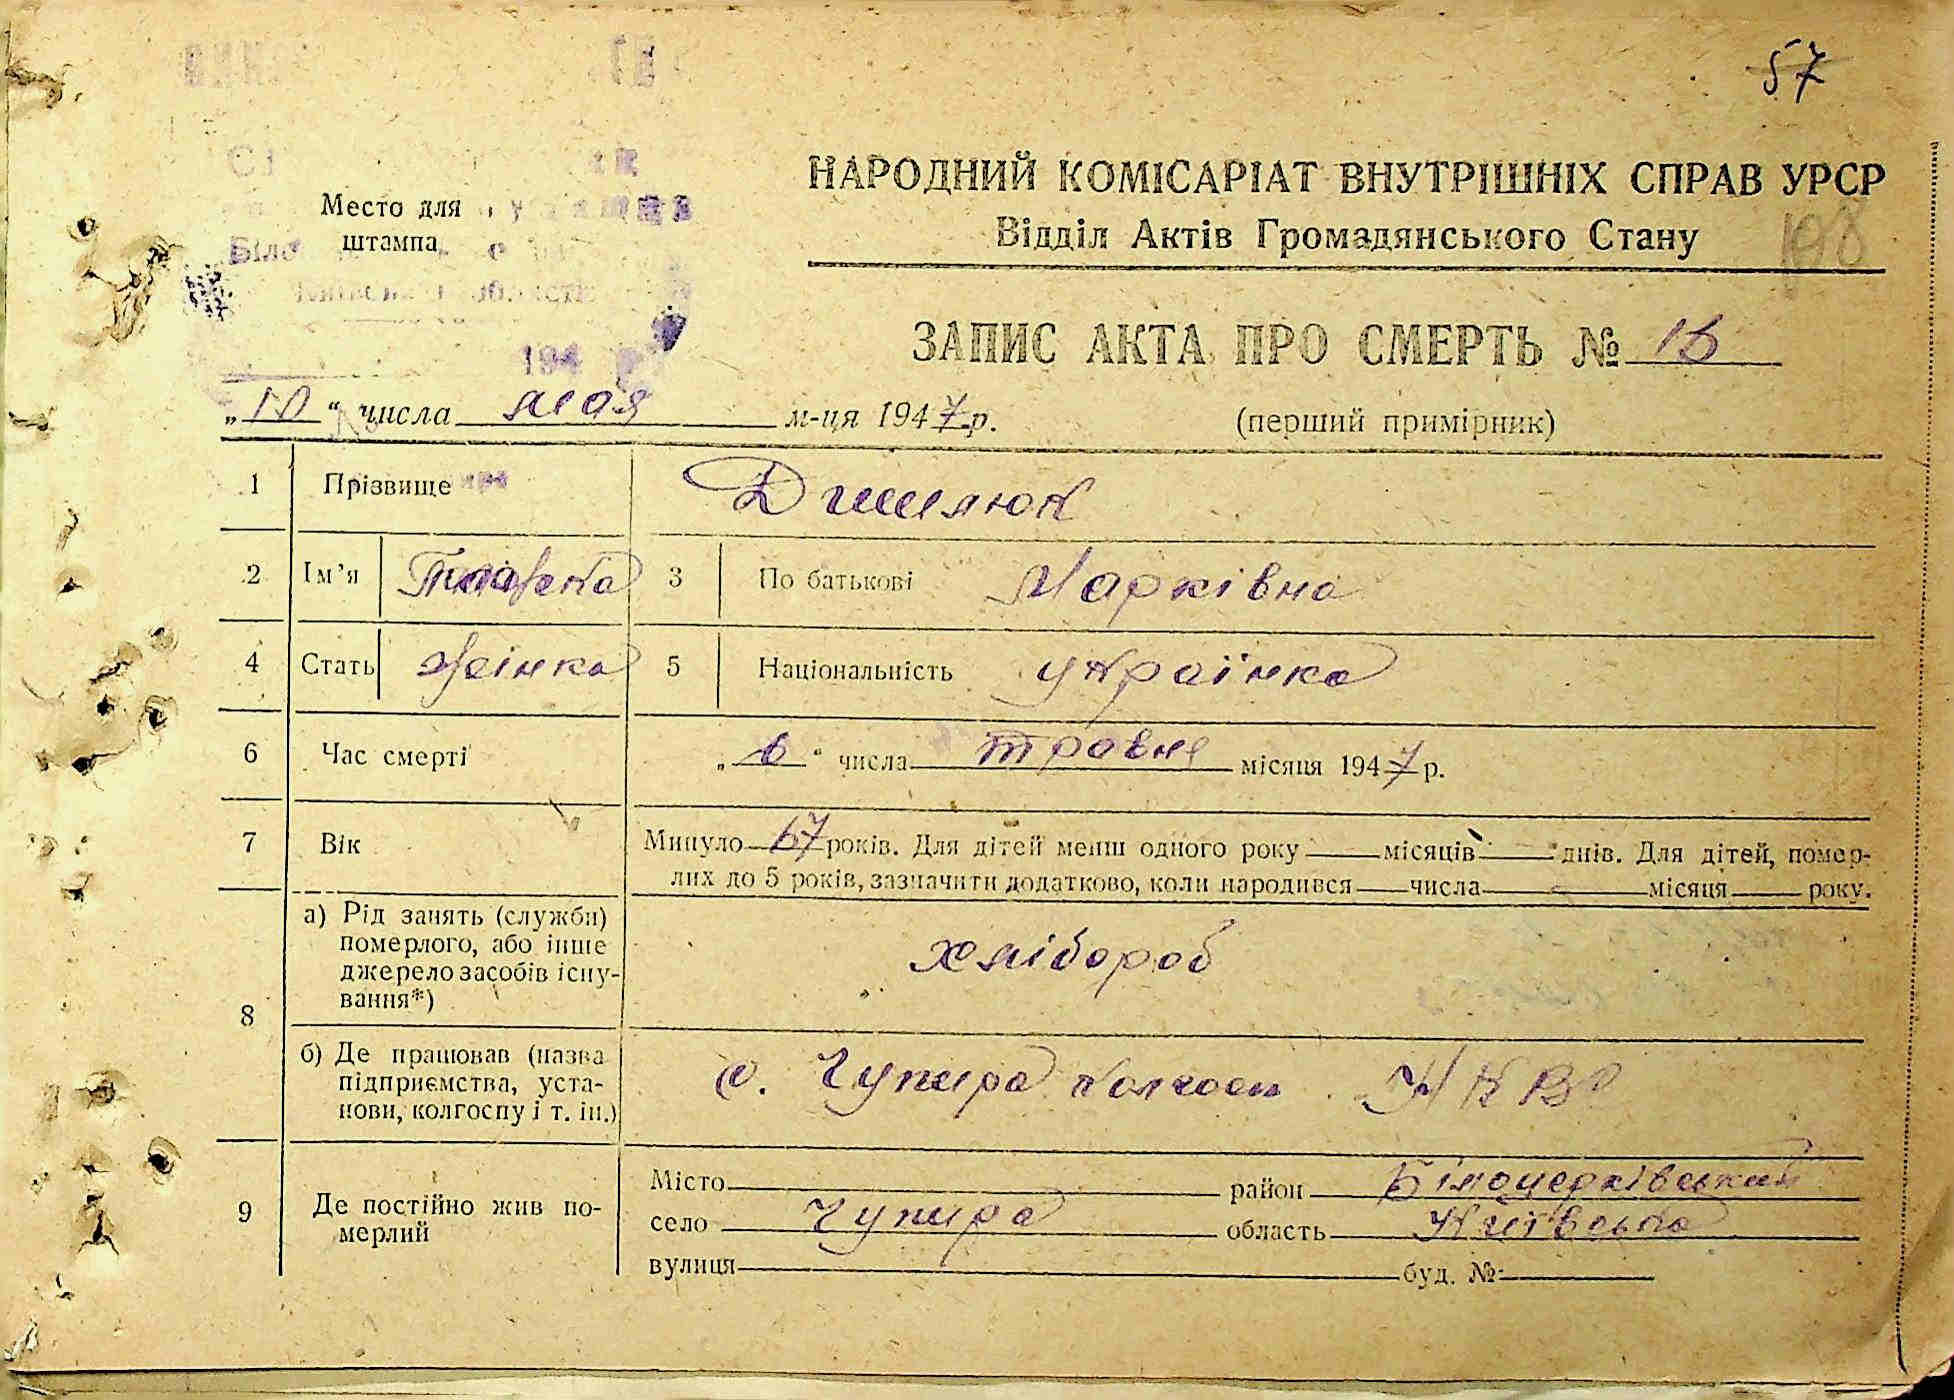 57
НАРОДНИЙ КОМІСАРІАТ ВНУТРІШНІХ СПРАВ УРСР
Відділ Актів Громадянського Стану
198
Место для
штампа
області
194
ЗАПИС АКТА ПРО СМЕРТЬ №
„10“ числа мая м-ця 1947 р.
(перший примірник)
1 Прізвище
2 Ім’я 3 По батькові Марківна
4 Стать жінка 5 Національність українка
6 Час смерті „6“ числа травня місяця 1947 р.
7 Вік Минуло 67 років. Для дітей менш одного року місяців днів. Для дітей, помер-
лих до 5 років, зазначити додатково, коли народився числа місяця року.
8 а) Рід занять (служби)
померлого, або інше
джерело засобів існу-
вання*)
хлібороб
б) Де працював (назва
підприємства, уста-
нови, колгоспу і т. ін.)
с. Чупира колгосп НКВС
9 Де постійно жив по-
мерлий
Місто район Білоцерківський
село Чупира область Київська
вулиця буд. №